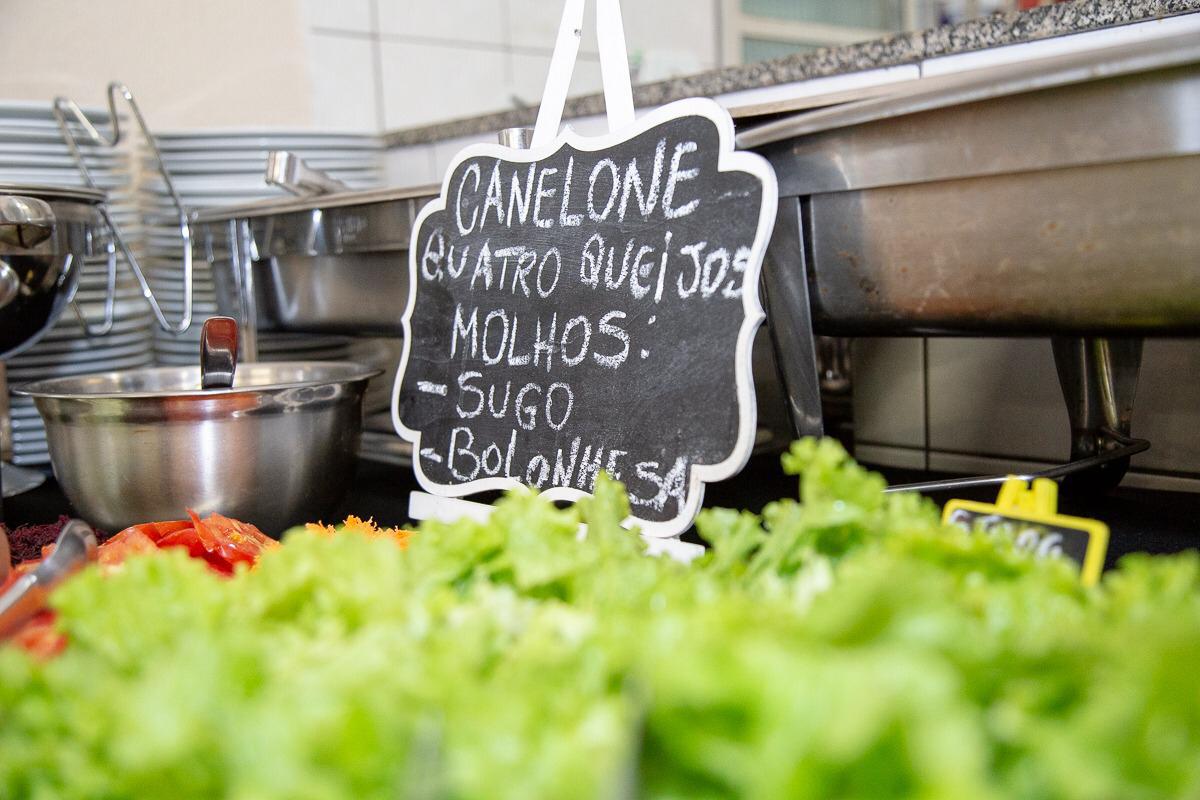 CANELONE
QUATRO QUEIJOS
MOLHOS:
- SUGO
- BOLONHESA